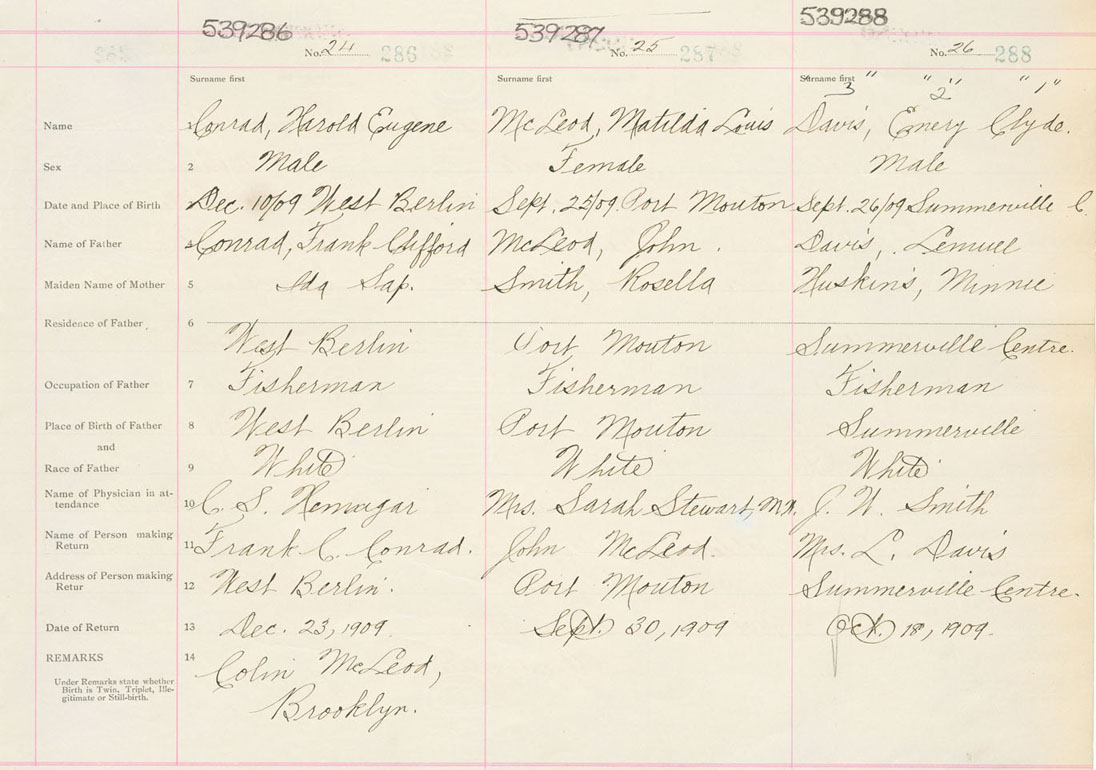 539286 539287 539288
No. 24 286 No. 25 287 No. 26 288
Surname first Surname first Surname first " " " " "
3 2 1
Name 1 Conrad, Harold Eugene McLeod, Matilda Louis Davis, Emery Clyde.
Sex 2 Male Female Male
Date and Place of Birth Dec. 10/09 West Berlin Sept. 25/09. Port Mouton Sept. 26/09 Summerville C.
Name of Father 4 Conrad, Frank Clifford McLeod, John. Davis, Lemuel
Maiden Name of Mother 5 Ida Smith, Rosella Huskins, Minnie
Residence of Father 6
West Berlin Port Mouton Summerville Centre.
Occupation of Father 7 Fisherman Fisherman Fisherman
Place of Birth of Father 8 West Berlin Port Mouton Summerville
and
Race of Father 9 White White White
Name of Physician in at-
tendance 10 C. S. Mrs. Sarah Stewart, J. W. Smith
Name of Person making
Return 11 Frank C. Conrad. John McLeod. Mrs. L. Davis
Address of Person making
Retur 12 West Berlin. Port Mouton Summerville Centre.
Date of Return 13 Dec. 23, 1909. Sept. 30, 1909 Oct. 18, 1909.
REMARKS 14 Colin McLeod,
Under Remarks state whether
Birth is Twin, Triplet, Ille-
gitimate or Still-birth.
Brooklyn.